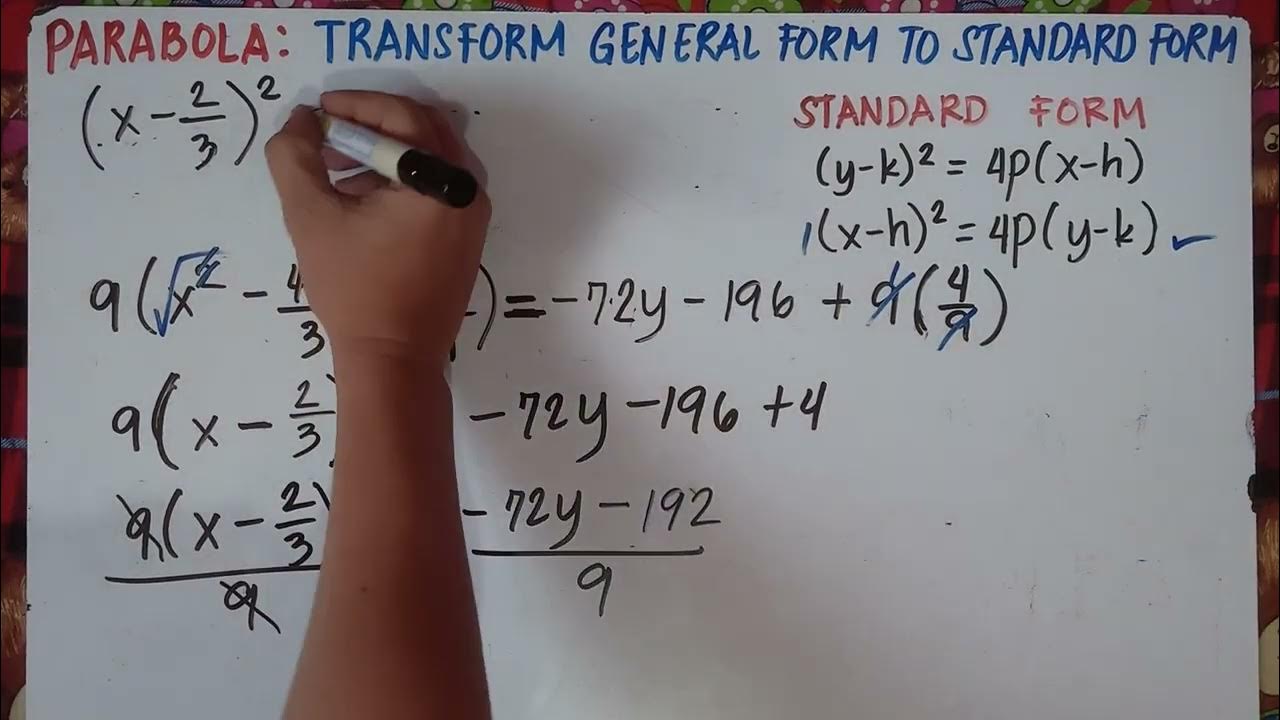 PARABOLA: TRANSFORM GENERAL FORM TO STANDARD FORM
(x - 2/3)²
STANDARD FORM
(y-k)² = 4p(x-h)
(x-h)² = 4p(y-k) ✓
9(x² - 4/3 ) = -72y - 196 + 9(4/9)
9(x - 2/3) -72y -196 +4
9(x - 2/3) / 9 -72y - 192 / 9